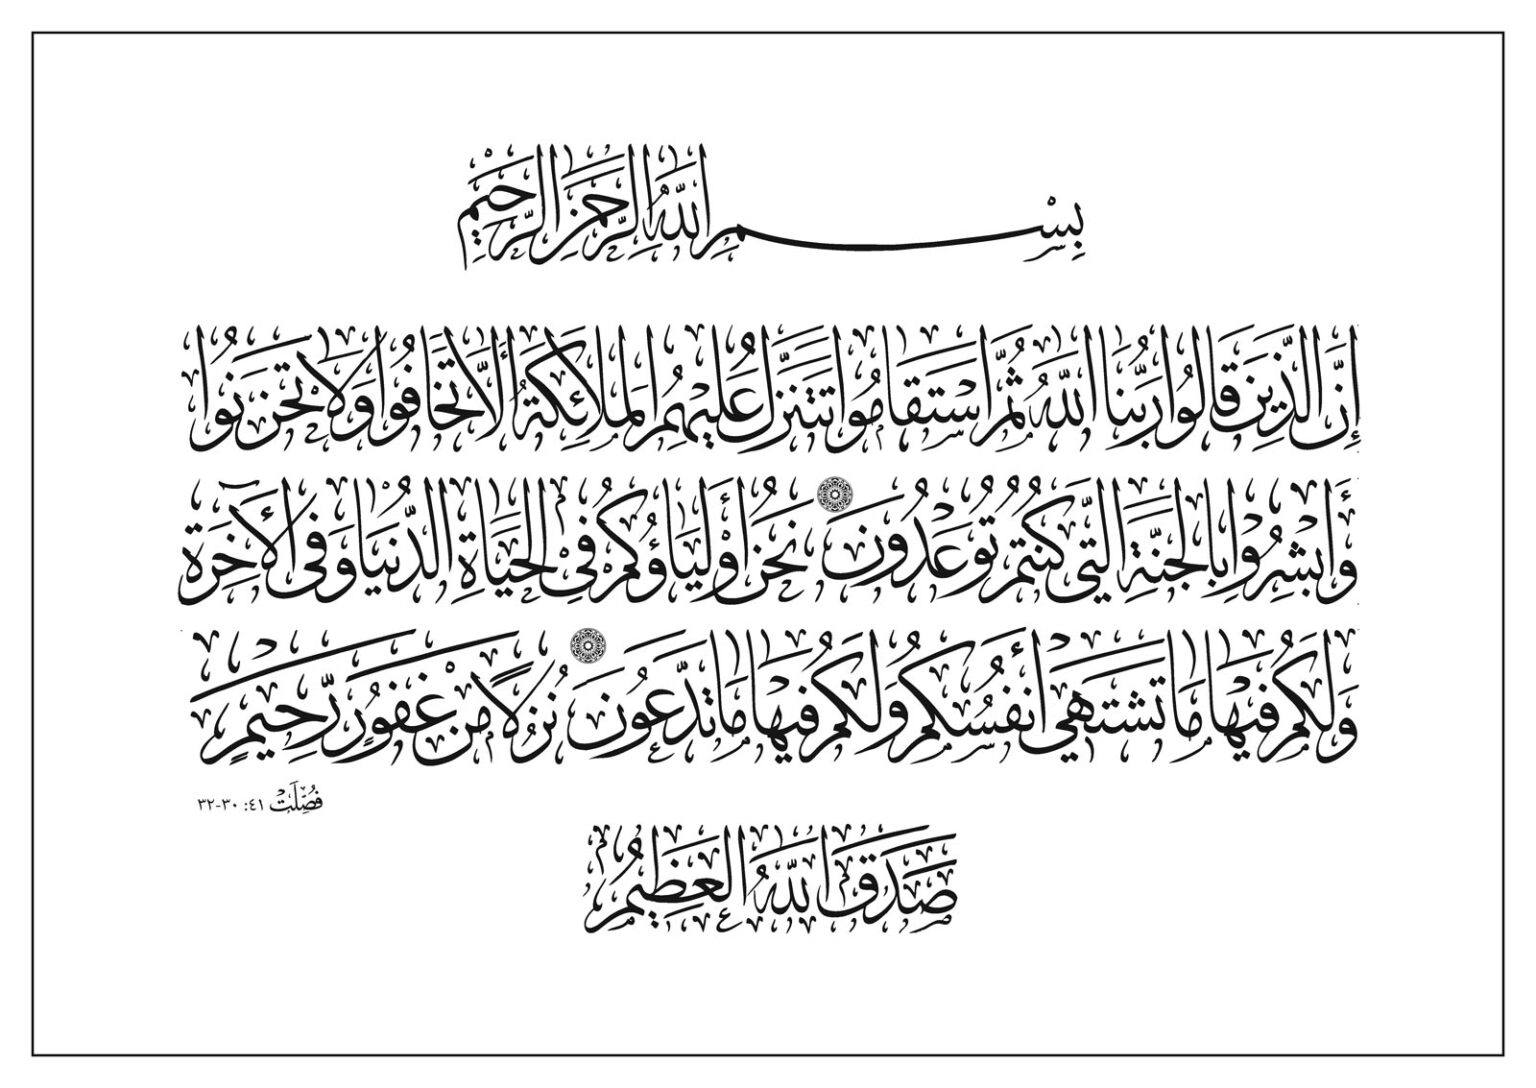 بِسْمِ اللَّهِ الرَّحْمَنِ الرَّحِيمِ
إِنَّ الَّذِينَ قَالُوا رَبُّنَا اللَّهُ ثُمَّ اسْتَقَامُوا تَتَنَزَّلُ عَلَيْهِمُ الْمَلَائِكَةُ أَلَّا تَخَافُوا وَلَا تَحْزَنُوا
وَأَبْشِرُوا بِالْجَنَّةِ الَّتِي كُنْتُمْ تُوعَدُونَ نَحْنُ أَوْلِيَاؤُكُمْ فِي الْحَيَاةِ الدُّنْيَا وَفِي الْآخِرَةِ
وَلَكُمْ فِيهَا مَا تَشْتَهِي أَنْفُسُكُمْ وَلَكُمْ فِيهَا مَا تَدَّعُونَ نُزُلًا مِنْ غَفُورٍ رَحِيمٍ
فُصِّلَتْ ٤١: ٣٠-٣٢
صَدَقَ اللَّهُ الْعَظِيمُ